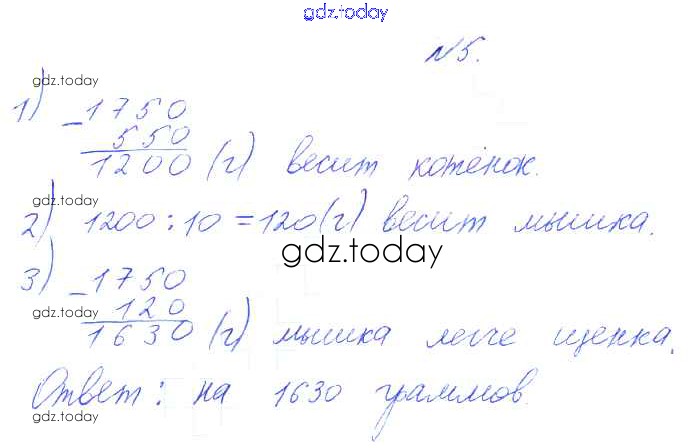 gdz.today
N5.
gdz.today
1) - 1750
550
1200 (г) весит котёнок.
gdz.today
2) 1200 : 10 = 120 (г) весит мышка.
gdz.today
3) - 1750
gdz.today
120
1630 (г) мышка легче щенка.
Ответ: на 1630 граммов.
gdz.today